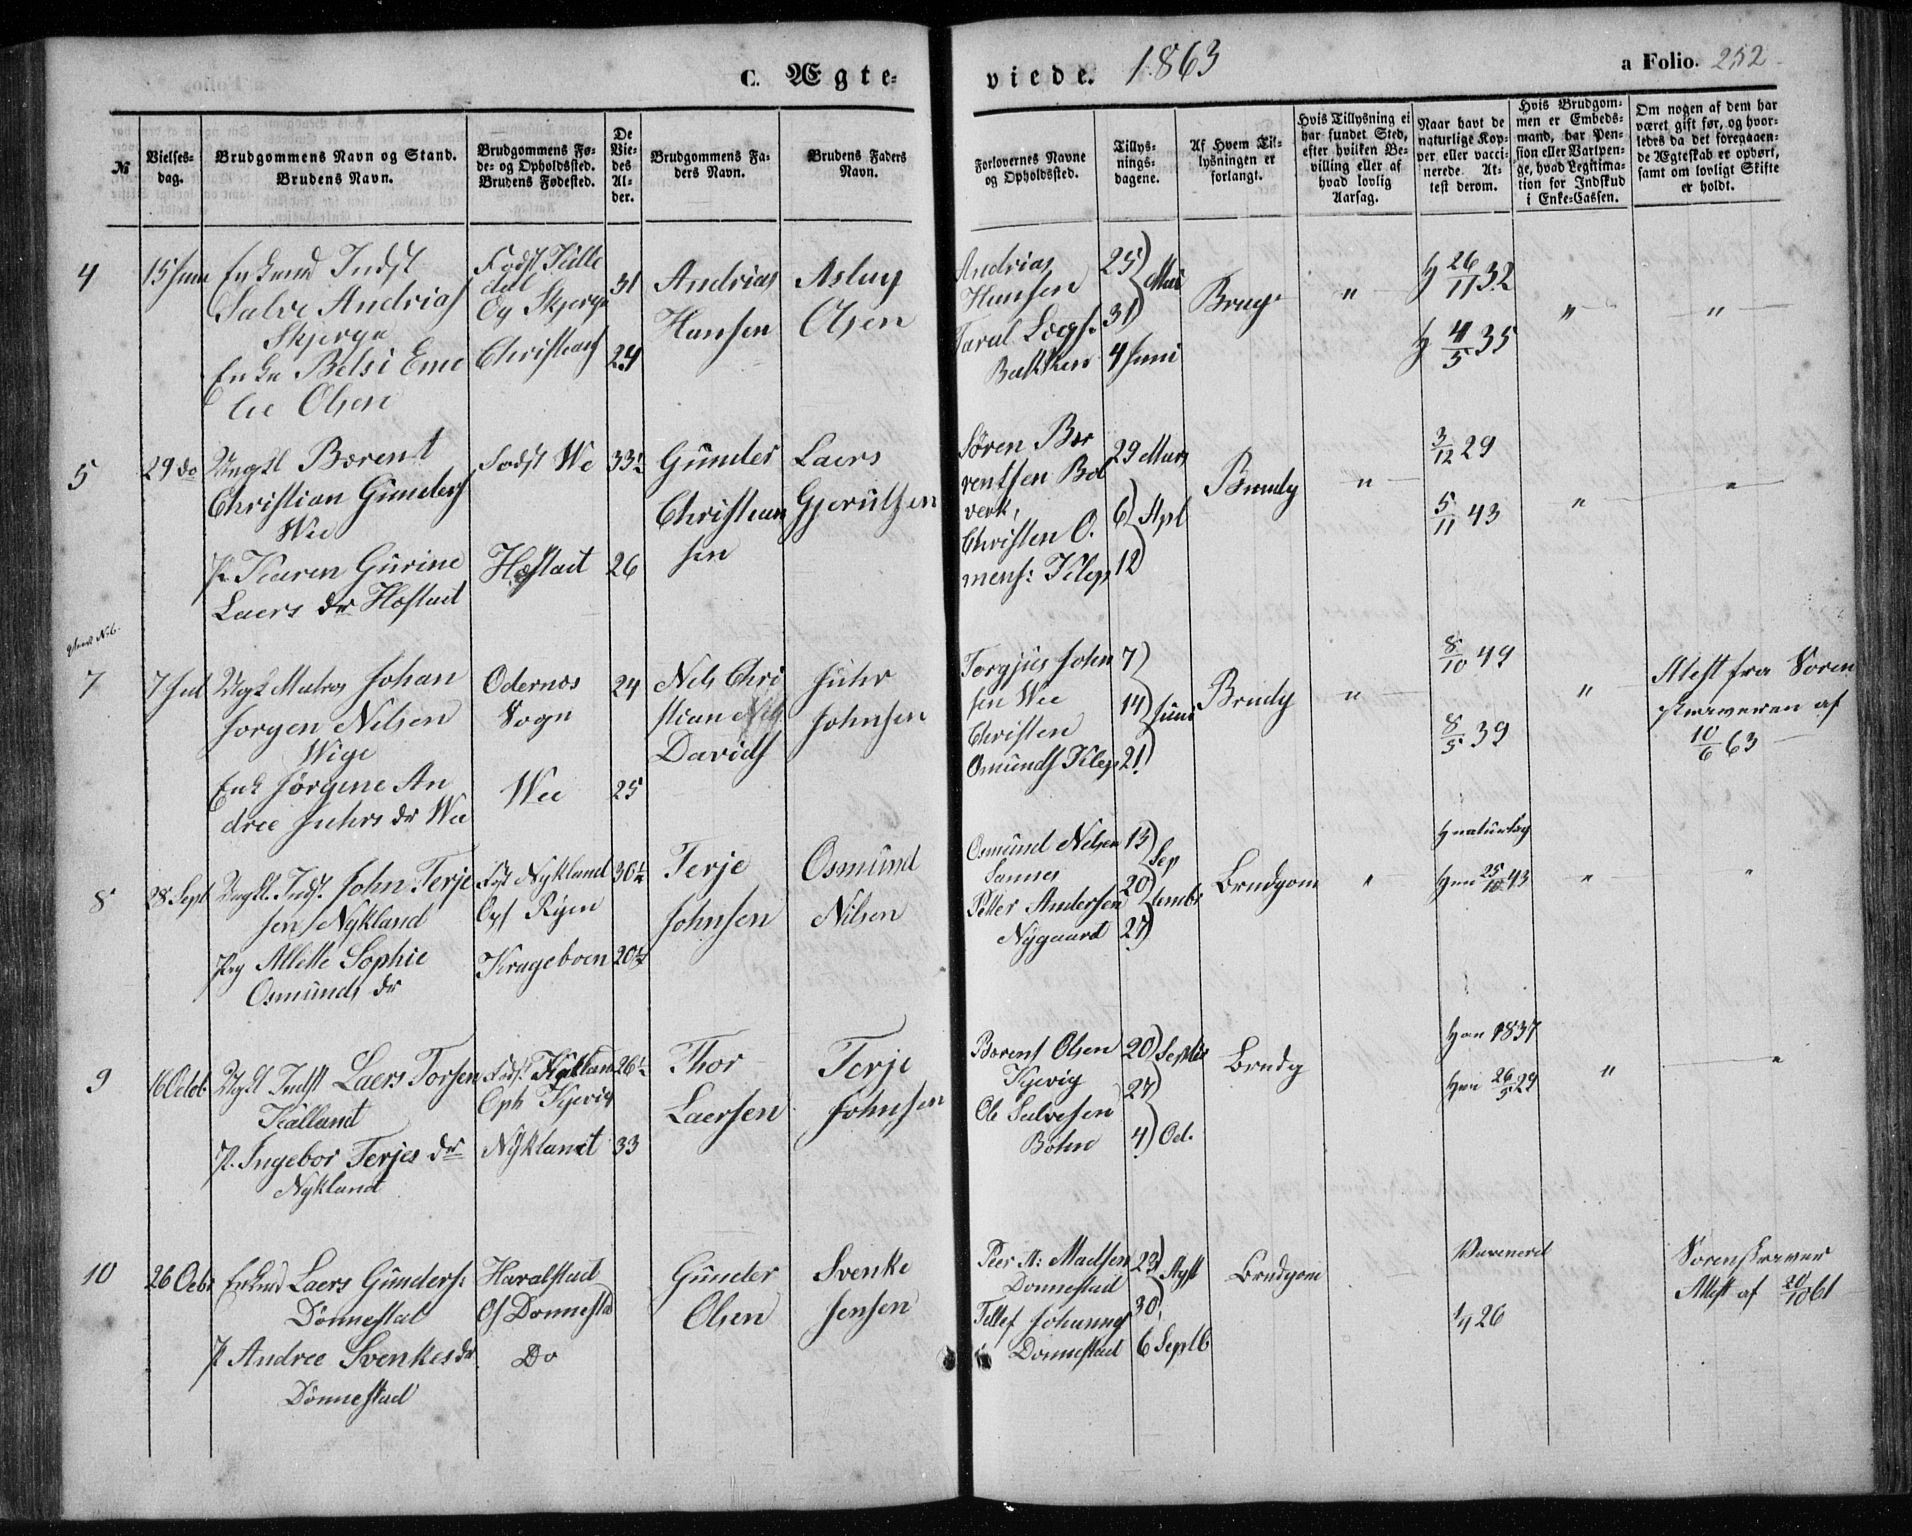 C. Ægteviede. 1863
a Folio. 252
№
Vielsesdag.
Brudgommens Navn og Stand. Brudens Navn.
Brudgommens Føde- og Opholdssted. Brudens Fødested.
De Viedes Alder.
Brudgommens Faders Navn.
Brudens Faders Navn.
Forlovernes Navne og Opholdssted.
Tillysningsdagene.
Af Hvem Tillysningen er forlangt.
Hvis Tillysning ei har fundet Sted, efter hvilken Bevilling eller af hvad lovlig Aarsag.
Naar havt de naturlige Kopper eller vaccinerede. Attest derom.
Hvis Brudgommen er Embedsmand, har Pension eller Vartpenge, hvad Legitimation for Indskud i Enke-Cassen.
Om nogen af dem har været gift før, og hvorledes da det foregaaende Ægteskab er ophørt, samt om lovligt Skifte er holdt.
4
15 Juni
Enkmd Indst
Salve Andrias
Skjerge
Enke Betsi Eme
lie Olsen
Fodst Tille
dal
Og Skjerge
Christians
31
24
Andrias
Hansen
Aslag
Olsen
Andrias
Hansen
Taral Legs.
Bakken
25) Mai
31)
4 Juni
Brugs
"
26/11 32
4/5 35
"
"
5
29 do
Ungkl Bærent
Christian Gunders
Wee
P. Karen Gurine
Laers dr Høstad
Fodst We
Høstad
33½
26
Gunder
Christian
sen
Laers
Gjerulsen
Søren Bær
rentsen Bol
verk,
Christen O.
mens: Klep
29 Mars
6) Apl
12)
Brudg
"
3/12 29
5/11 43
"
"
7
7 Jul
Ungk Matros Johan
Jorgen Nilsen
Wige
Enk Jørgine An
drea Juhrs dr Wee
Odernes
Sogn
Wee
24
25
Nils Chri
stian
Davids
Juhr
Johnsen
Torgjus John
sen Wee
Christen
Omunds Klep
7)
14) Juni
21)
Brudg
"
8/10 49
8/5 39
"
Atest fra Soren
skreveren af
10/6 63
8
28 Sept
Ungkl. Indst. John Terje
sen Nykland
Pig Allette Sophie
Osmunds dr
Fst Nykland
Ops Rigen
Krageboen
30½
20½
Terje
Johnsen
Osmund
Nilsen
Osmund Nilsen
Sannes
Petter Andersen
Nygaard
13) Sep
20) tembr
27)
Brudgom
"
H naturlig
Hun 25/10 43
"
"
9
16 Octob
Ungkl Indst Laers Torsen
Kalland
P. Ingebor Terjes dr
Nykland
Fodst Kalland
Oph Kjevig
Nykland
26½
33
Thor
Laersen
Terje
Johnsen
Borent Olsen
Kjevig
Ole Salvesen
Bohn
20) Septbr
27)
4) Oct.
Brudg
Han 1837
Hun 26/5 29
"
"
10
26 Octbr
Enkmd Laers Gunders:
Dønnestad
P Andrea Svenkes dr
Dønnestad
Haralstad
Os Donnestad
Do
Gunder
Olsen
Svenke
Jensen
Peer A: Madsen
Donnestad
Tellef Johanns
Donnestad
23) Agst
30)
6 Septb
Brudgom
Vaxenered
1/7 26
Sorenskriver
Attest af 20/10 61